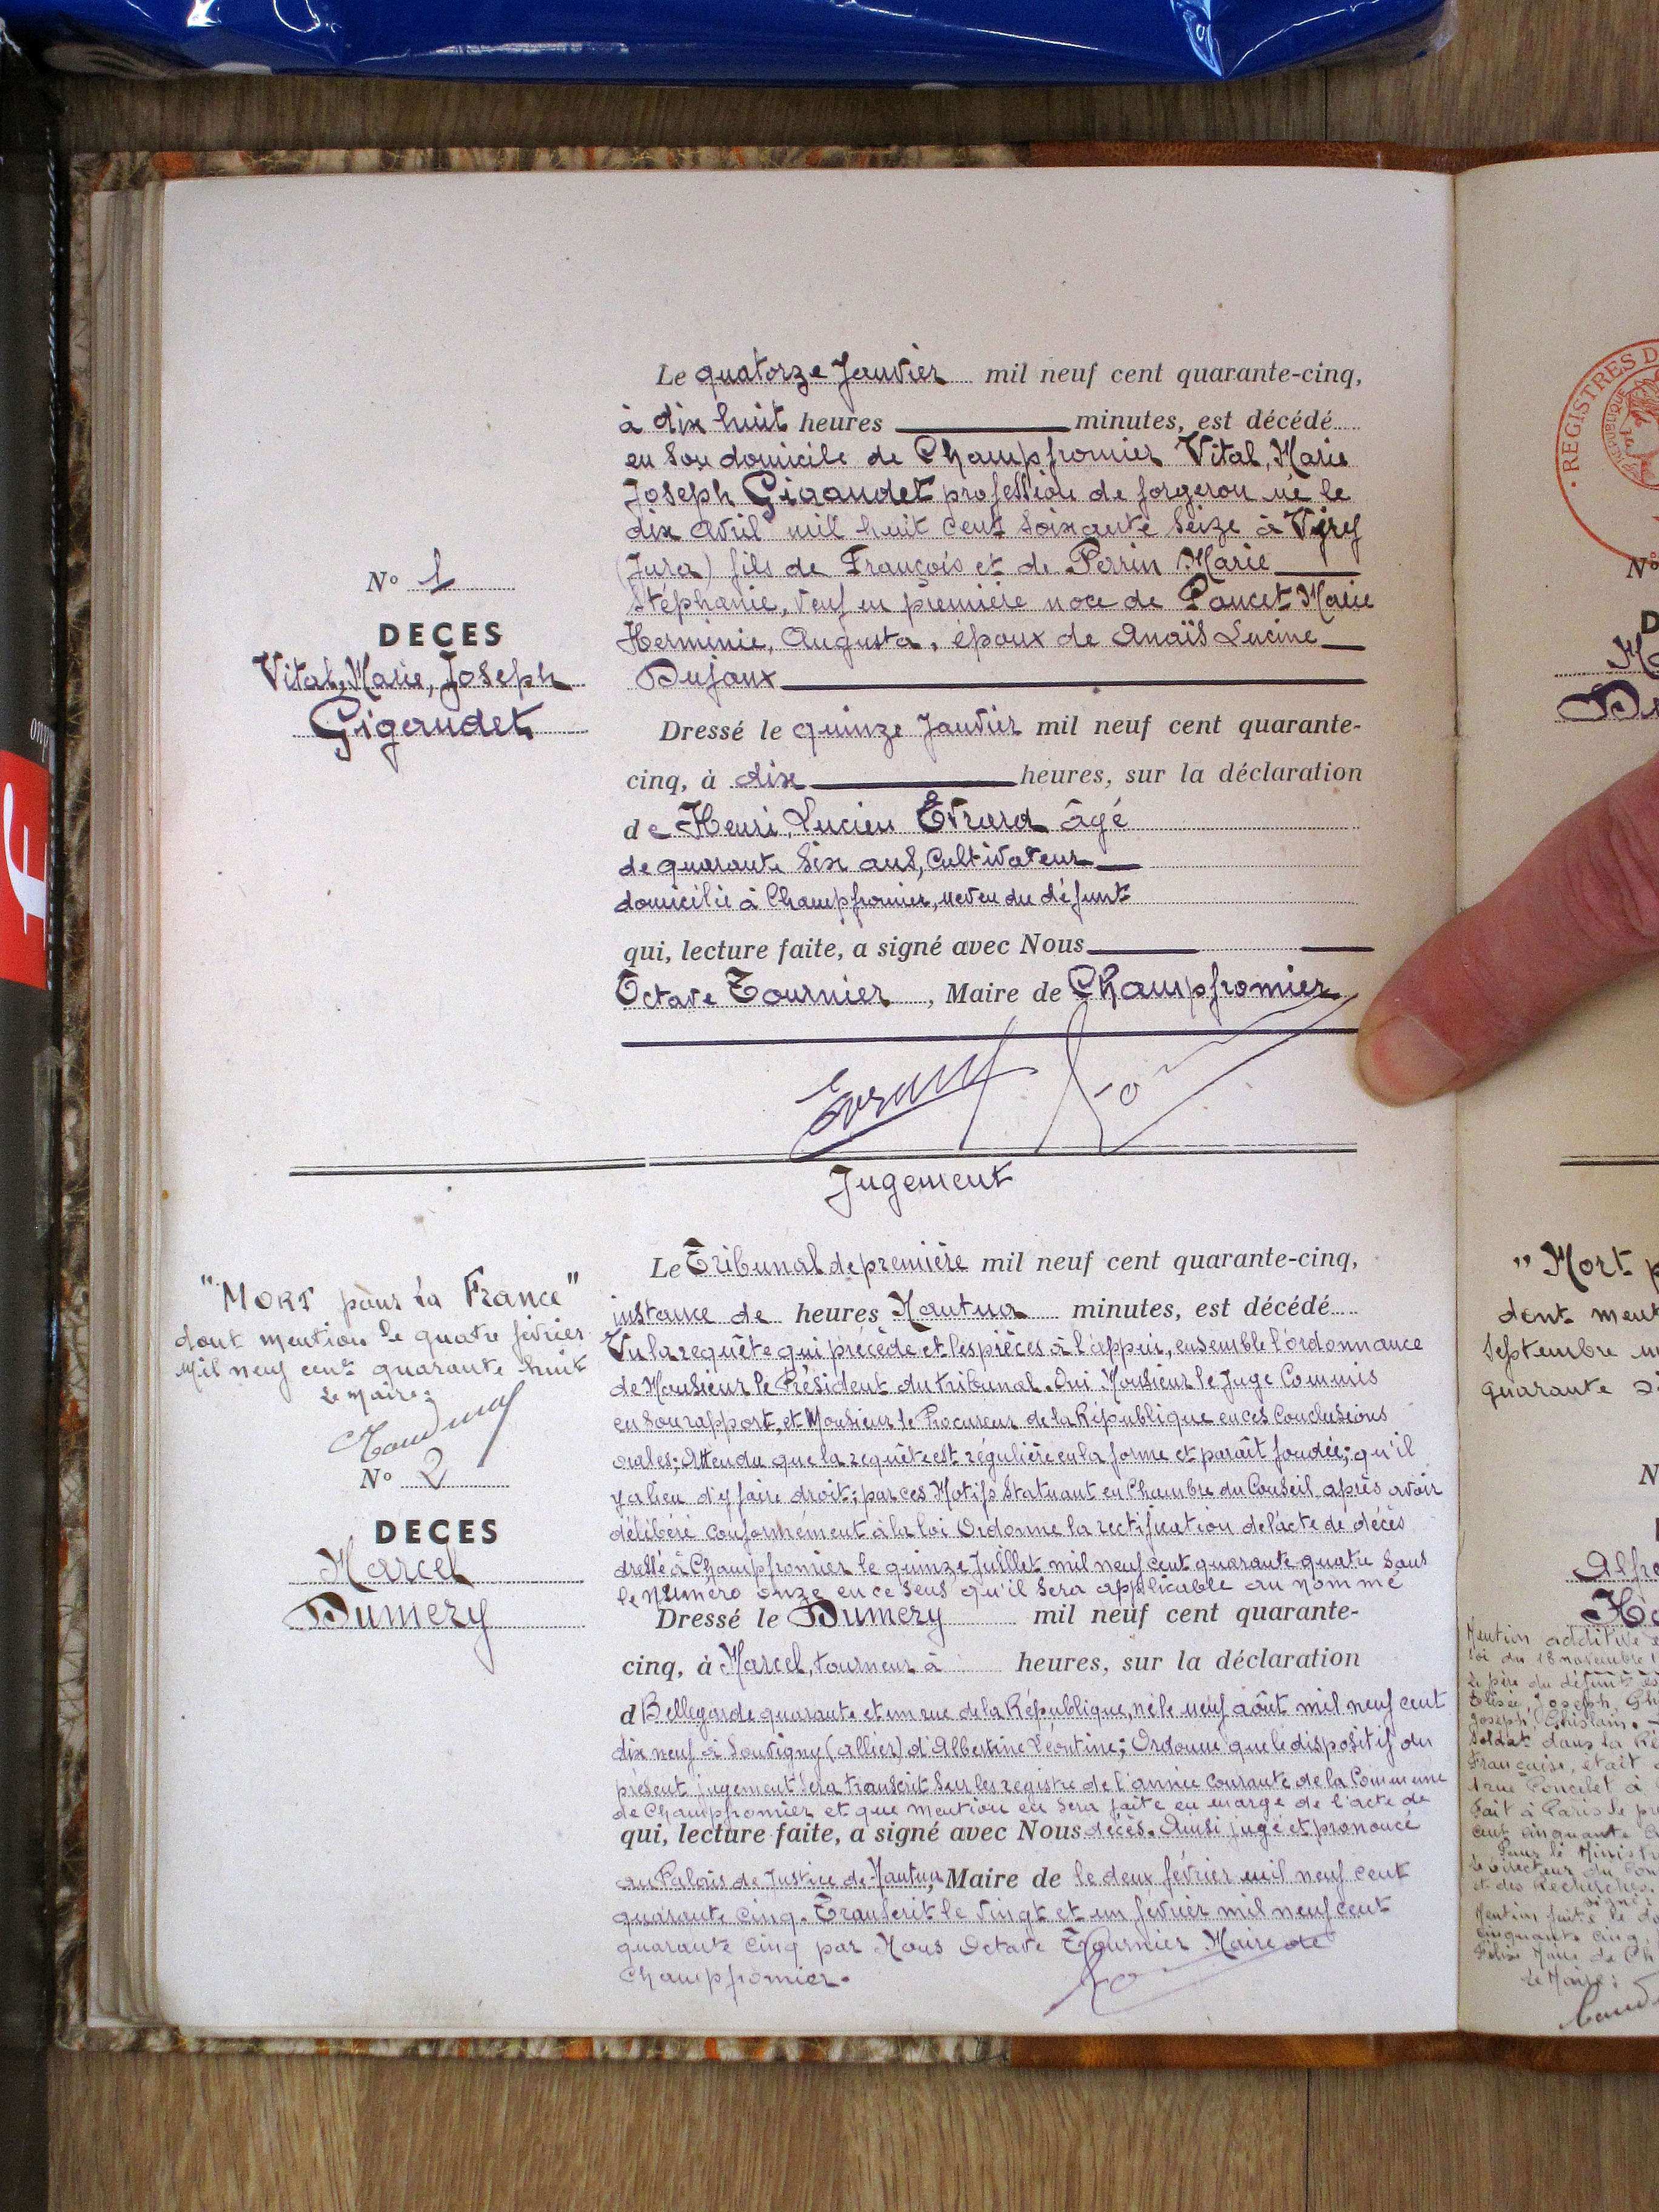 Le quatorze Janvier mil neuf cent quarante-cinq,
à dix huit heures minutes, est décédé
en son domicile de Champfromier Vital, Marie
Joseph Gigaudet profession de forgeron né le
dix Avril mil huit cent soixante seize à Viry
(Jura) fils de François et de Perrin Marie
Stéphanie, veuf en première noce de Poncet Marie
Herminie, Augusta, époux de Anaïs Lucine
Dujoux
N° 1
DECES
Vital, Marie, Joseph
Gigaudet
Dressé le quinze Janvier mil neuf cent quarante-
cinq, à dix heures, sur la déclaration
de Henri, Lucien Evrard âgé
de quarante six ans, Cultivateur
domicilié à Champfromier, neveu du défunt
qui, lecture faite, a signé avec Nous
Octave Tournier, Maire de Champfromier
Evrard
Jugement
"Mort pour la France"
dont mention le quatre février
Mil neuf cent quarante huit
Le Maire:
N° 2
DECES
Marcel
Dumery
Le Tribunal de première mil neuf cent quarante-cinq,
instance de heures Nantua minutes, est décédé
Vu la requête qui précède et les pièces à l'appui, ensemble l'ordonnance
de Monsieur le Président du tribunal. Oui Monsieur le Juge Commis
en son rapport, et Monsieur le Procureur de la République en ces Conclusions
orales; Attendu que la requête est régulière en la forme et paraît fondée; qu'il
y a lieu d'y faire droit; par ces Motifs Statuant en Chambre du Conseil, après avoir
délibéré conformément à la loi Ordonne la rectification de l'acte de décès
dressé à Champfromier le quinze Juillet mil neuf cent quarante quatre sous
le Numéro onze en ce sens qu'il sera applicable au nommé
Dressé le Dumery mil neuf cent quarante-
cinq, à Marcel, tourneur à heures, sur la déclaration
d Bellegarde quarante et un rue de la République, né le neuf août mil neuf cent
dix neuf à Souvigny (Allier) d'Albertine Léontine; Ordonne que le dispositif du
présent jugement sera transcrit sur les registre de l'année courante de la Commune
de Champfromier et que mention en sera faite en marge de l'acte de
qui, lecture faite, a signé avec Nous décès. Ainsi jugé et prononcé
au Palais de Justice de Nantua, Maire de le deux février mil neuf cent
quarante cinq. Transcrit le vingt et un février mil neuf cent
quarante cinq par Nous Octave Tournier Maire de
Champfromier.
REGISTRES D
"Mort p
dont ment
Septembre
quarante
Mention additive
loi du 18 novembre
Le Maire: